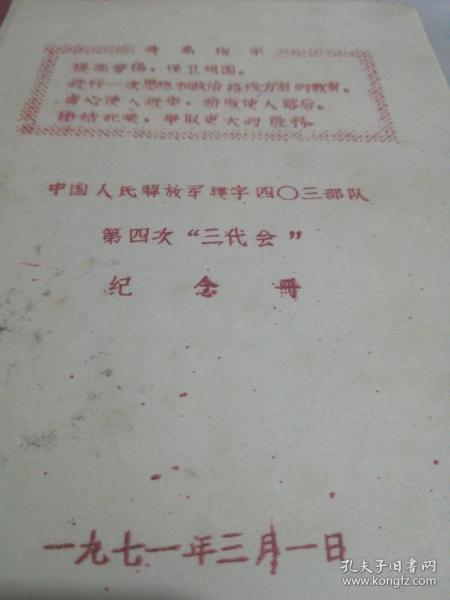 最高指示
提高警惕，保卫祖国。
进行一次思想和政治路线方面的教育。
虚心使人进步，骄傲使人落后。
团结起来，争取更大的胜利。
中国人民解放军字四〇三部队
第四次“三代会”
纪念册
一九七一年三月一日
孔夫子旧书网
www.kongfz.com